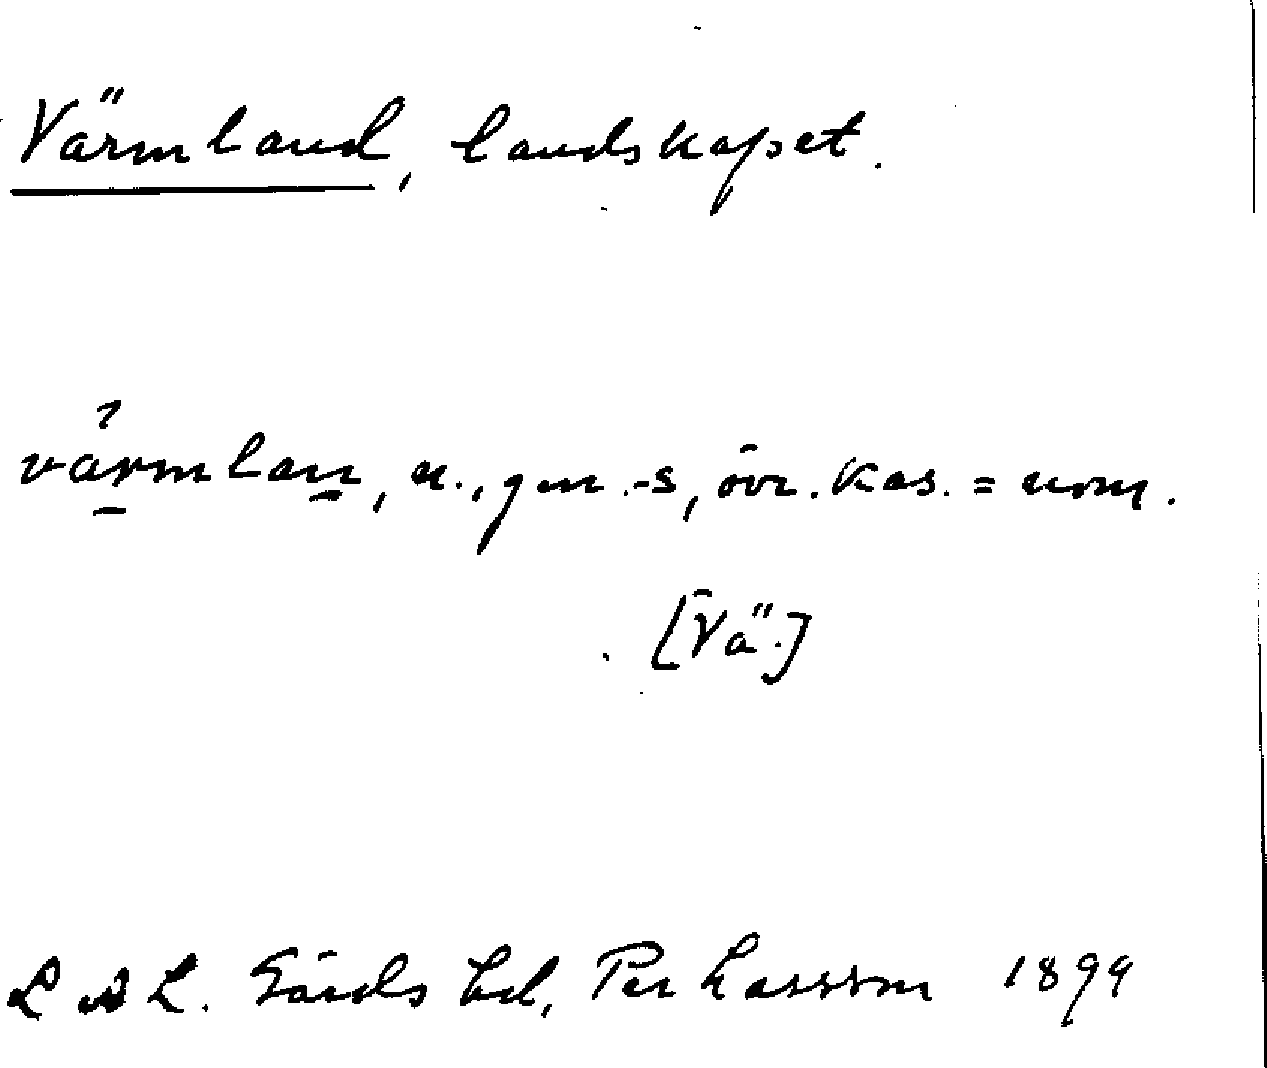 Värmland, landskapet.
värmlan, n., gen. -s, övr. kas. = nom.
[Vä.]
L A L. hd, Per Larsson 1899